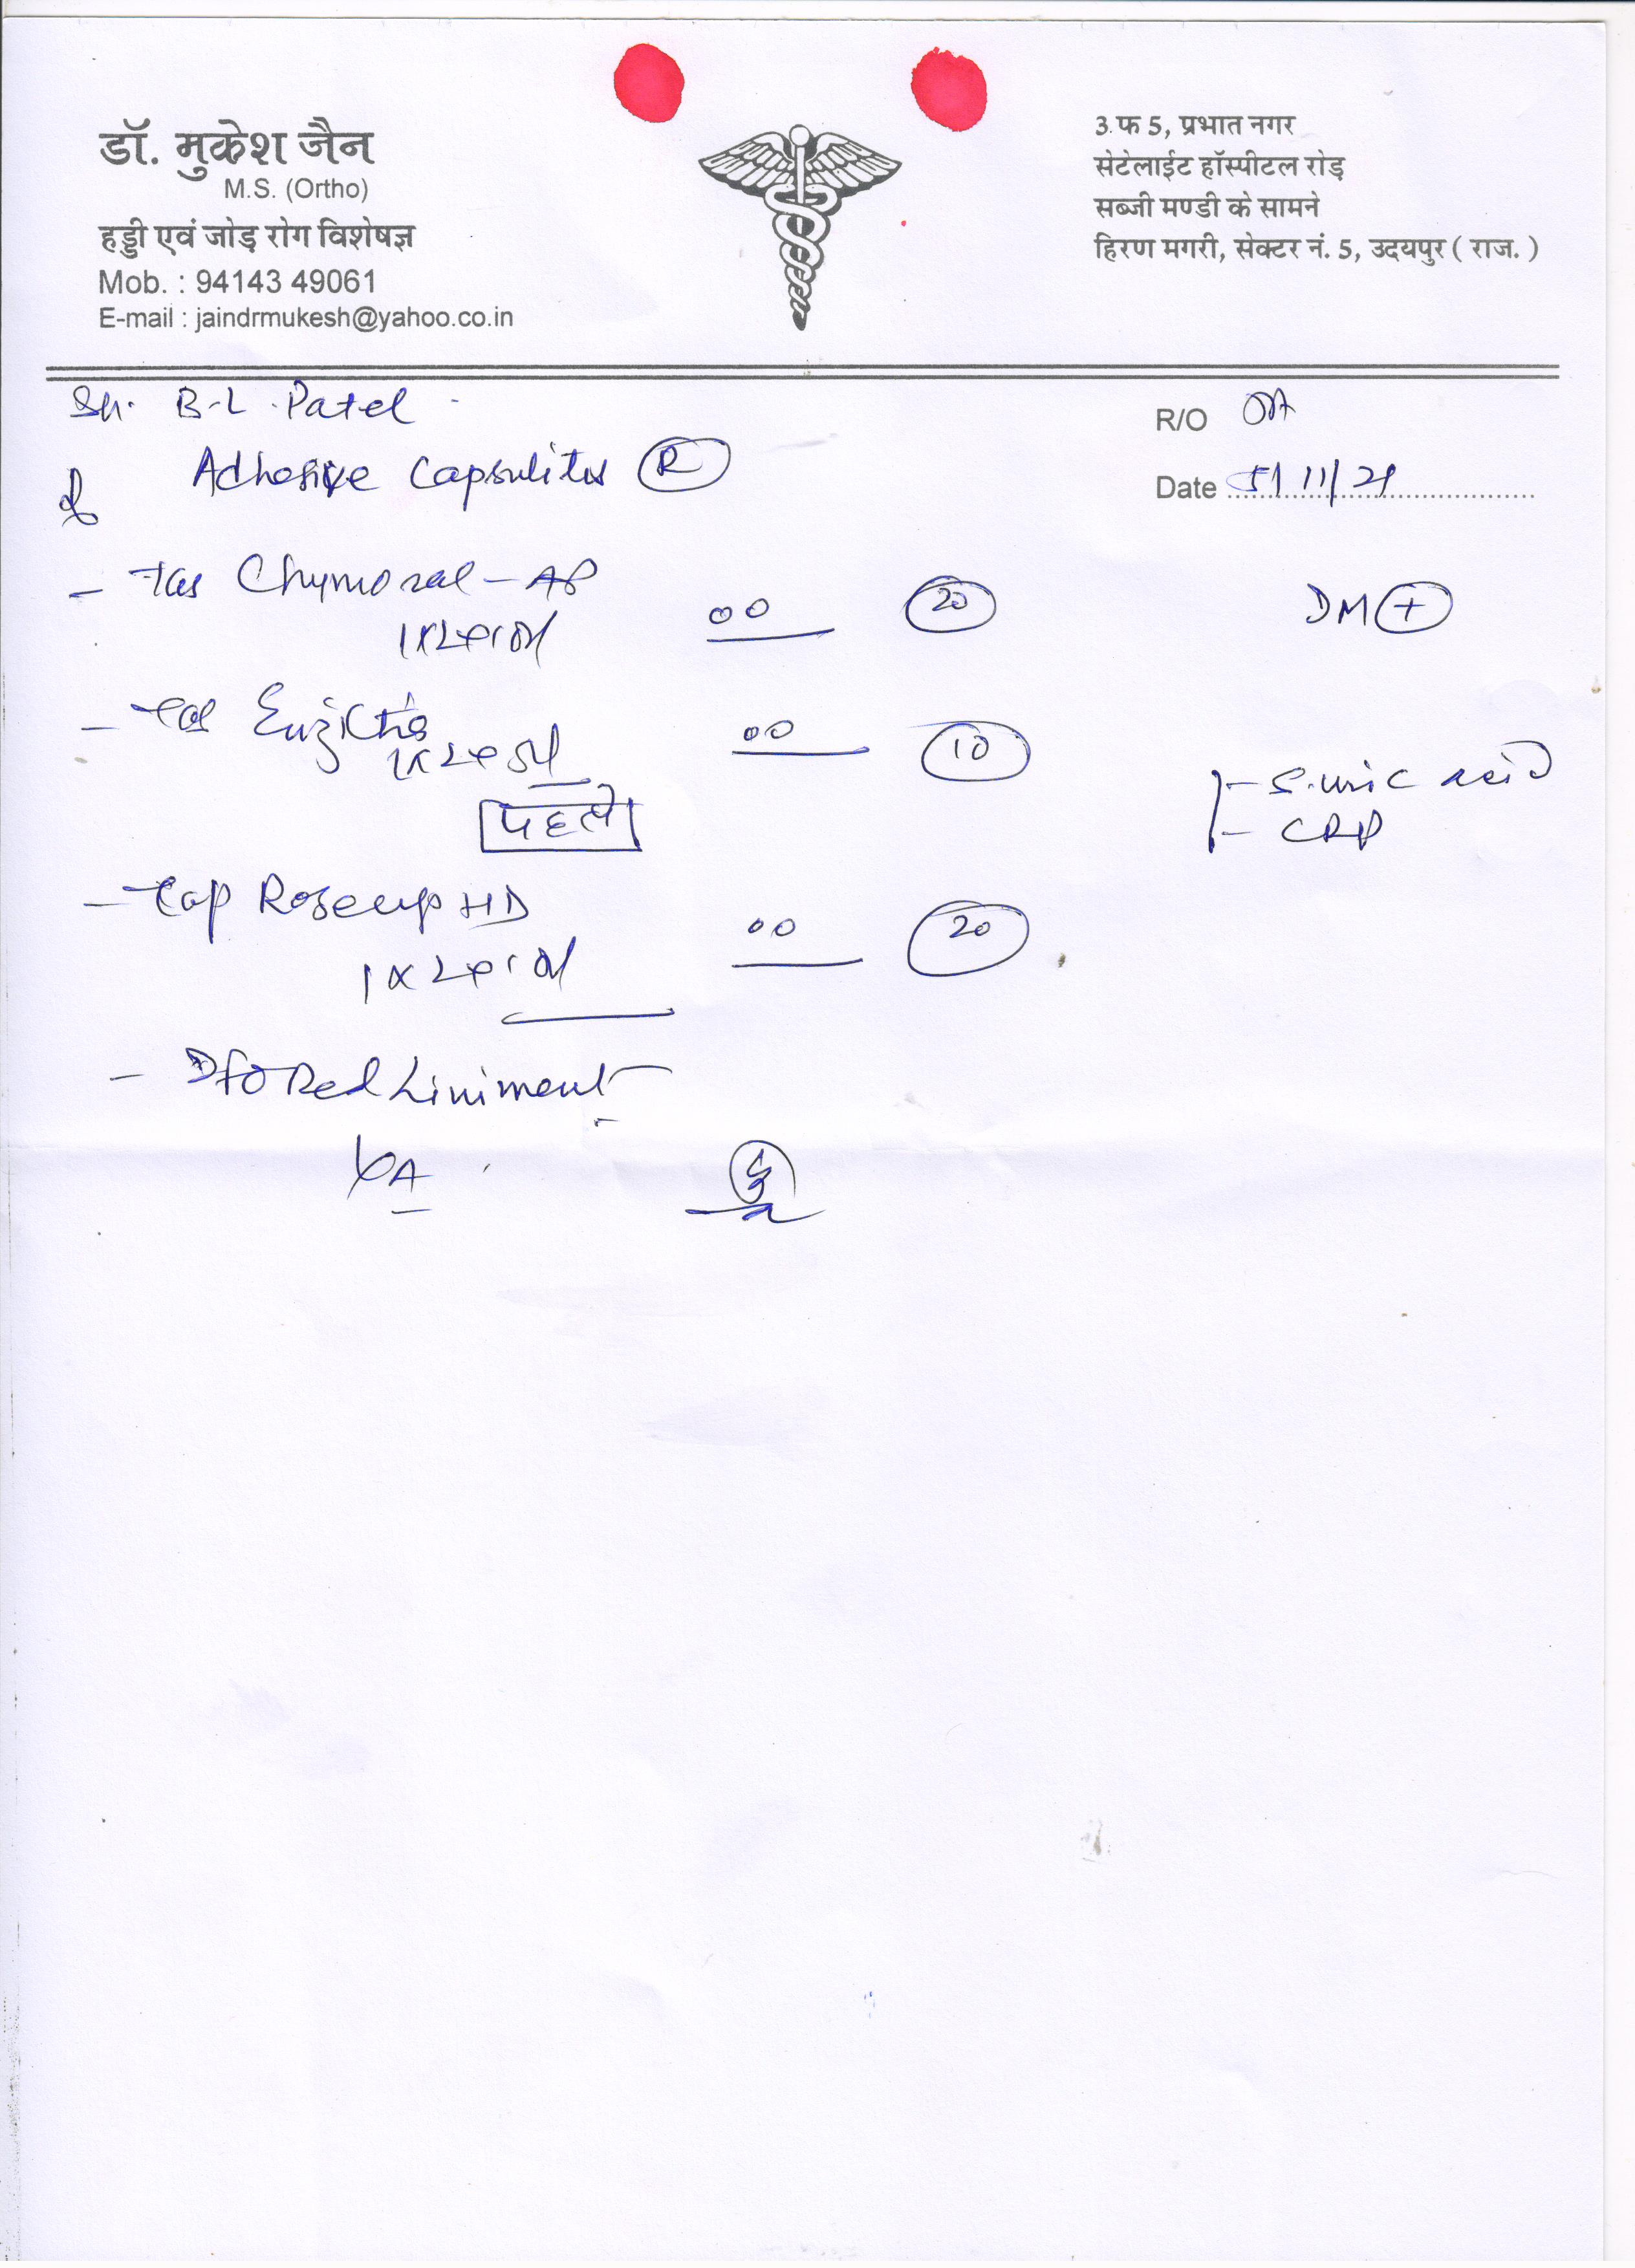 डॉ. मुकेश जैन
M.S. (Ortho)
हड्डी एवं जोड़ रोग विशेषज्ञ
Mob. : 94143 49061
E-mail : jaindrmukesh@yahoo.co.in
3 फ 5, प्रभात नगर
सेटेलाईट हॉस्पीटल रोड़
सब्जी मण्डी के सामने
हिरण मगरी, सेक्टर नं. 5, उदयपुर ( राज. )
Sh. B-L. Patel
R/O
Adhesive Capsulitis R
Date 5/11/21
- Tab Chymoral-AP
00 20
DM +
- Tab
00 10
पहले
- S. uric acid
- CRP
- Cap HD
00 20
- Liniment